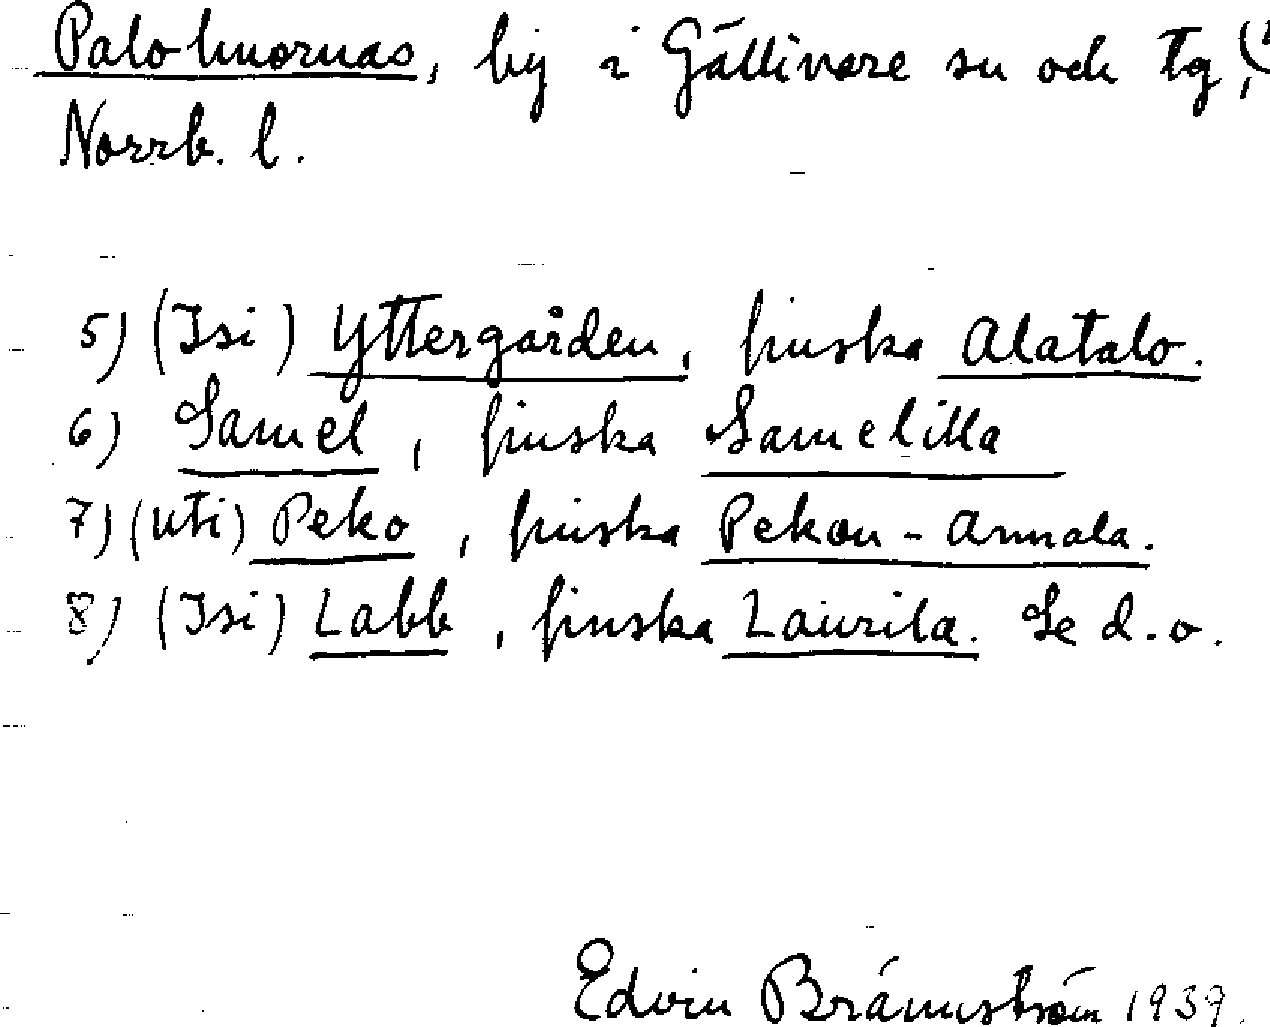 Palohuornas, by i Gällivare sn och tg,
Norrb. l.
5) (Isi) Yttergården, finska Alatalo.
6) Samel, finska Samelilla
7) (uti) Peko, finska Pekan-Annala.
8) (Isi) Labb, finska Laurila. Se d.o.
Edvin Brännström 1939.